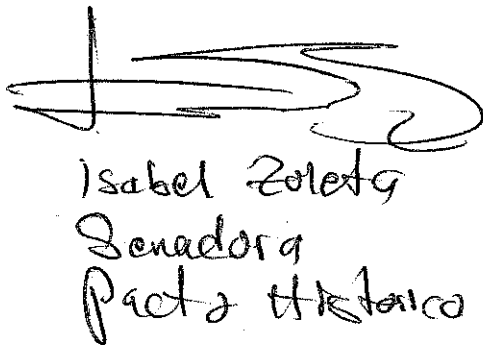 Isabel Zuleta
Senadora
Pacto Histórico